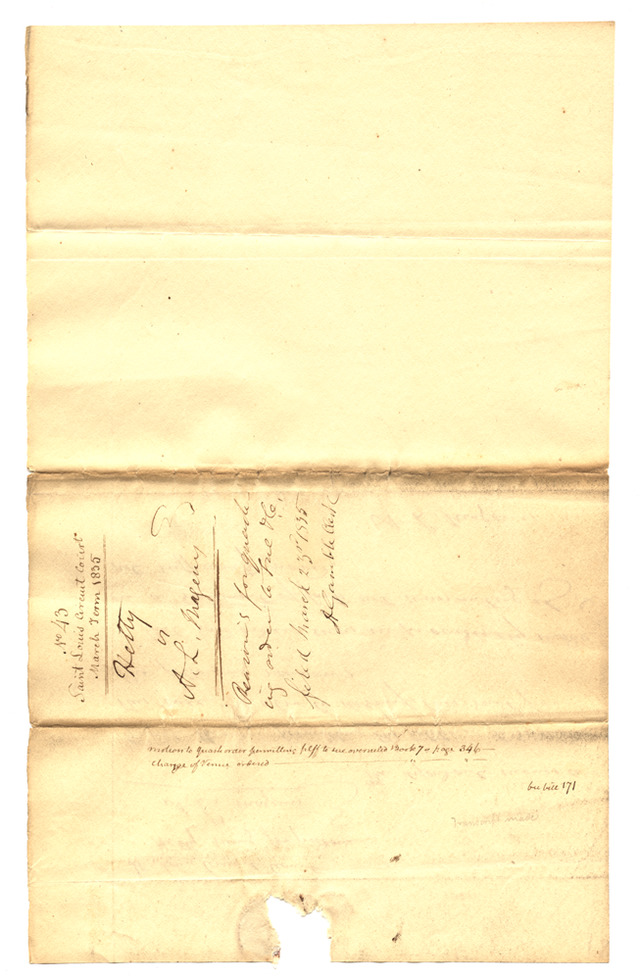 No 43
Saint Louis Circuit Court
March Term 1835
Hetty
vs
A. L. Magenis
Reasons for quash
ing order to sue &c.
filed March 23rd 1835
A Gamble Clerk
motion to quash order permitting plff to sue overruled Book 7 page 346
change of Venue ordered
bill 171